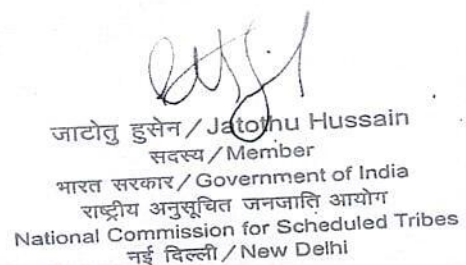 जाटोतु हुसेन / Jatothu Hussain
सदस्य / Member
भारत सरकार / Government of India
राष्ट्रीय अनुसूचित जनजाति आयोग
National Commission for Scheduled Tribes
नई दिल्ली / New Delhi